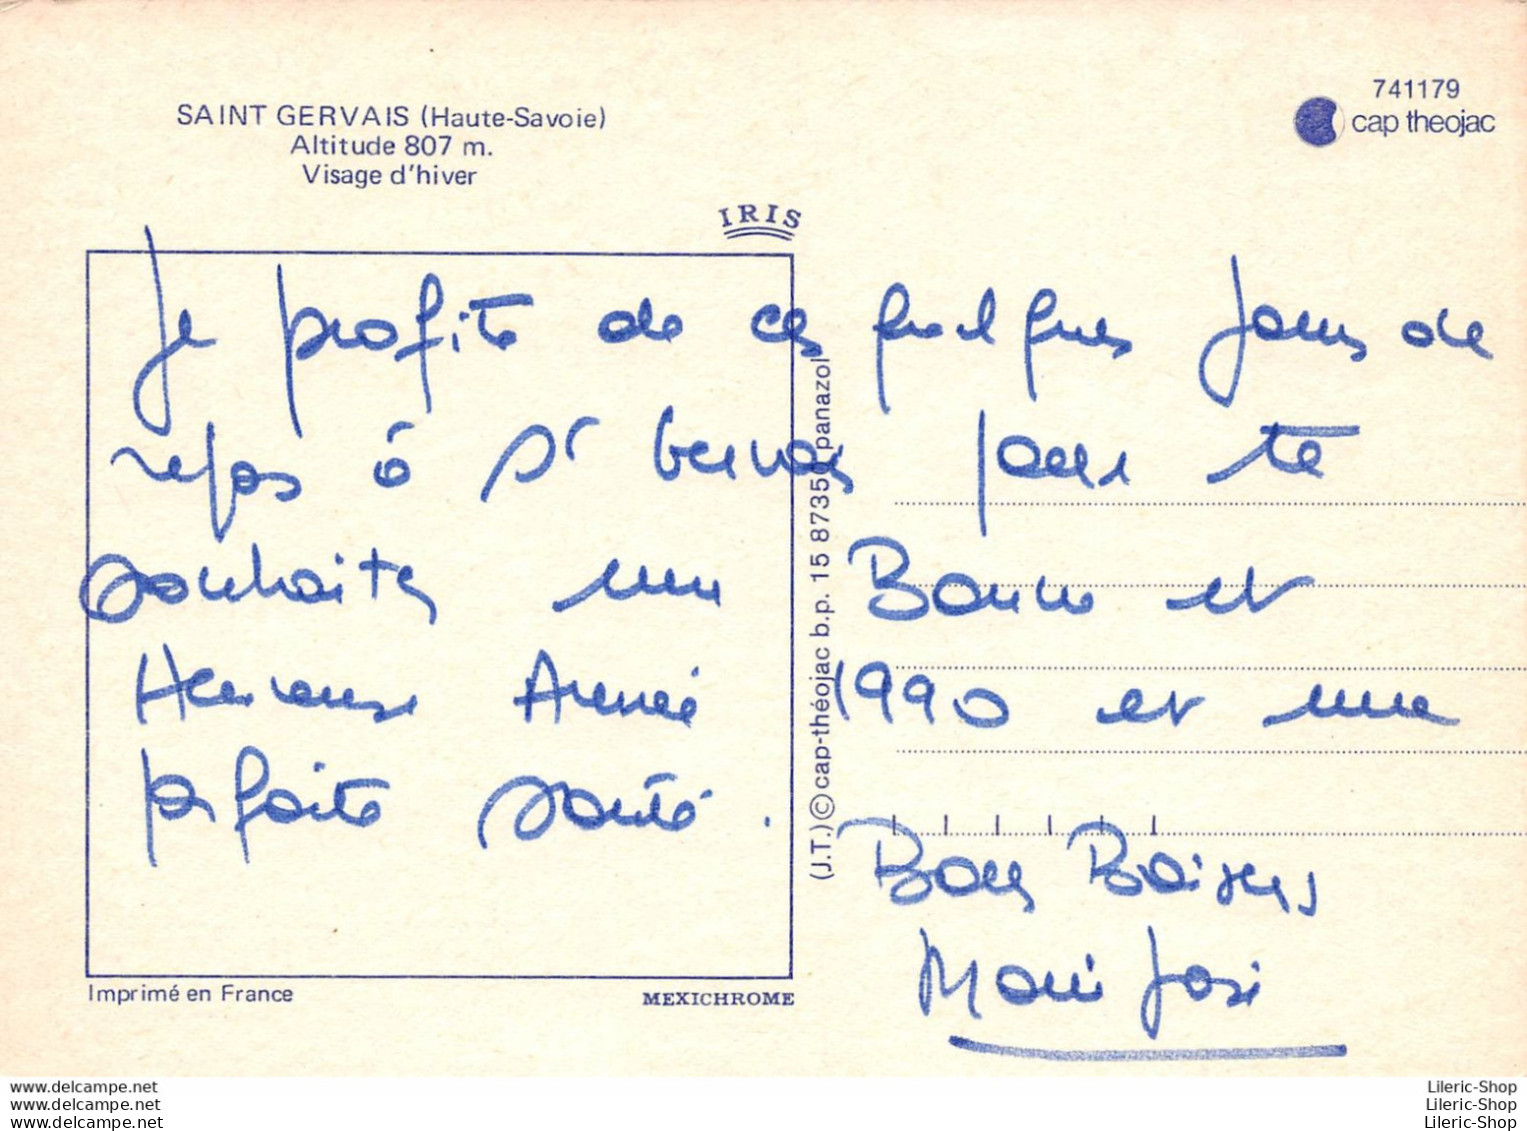 SAINT GERVAIS (Haute-Savoie)
Altitude 807 m.
Visage d'hiver
741179
cap theojac
IRIS
Je profite de ces quelques jours de
repos à St Gervais pour te
souhaiter une Bonne et
Heureuse Année 1990 et une
parfaite santé.
Bons Baisers
Marie José
(J.T.) © cap-théojac b.p. 15 87350 panazol
Imprimé en France
MEXICHROME
www.delcampe.net
www.delcampe.net
www.delcampe.net
Lileric-Shop
Lileric-Shop
Lileric-Shop